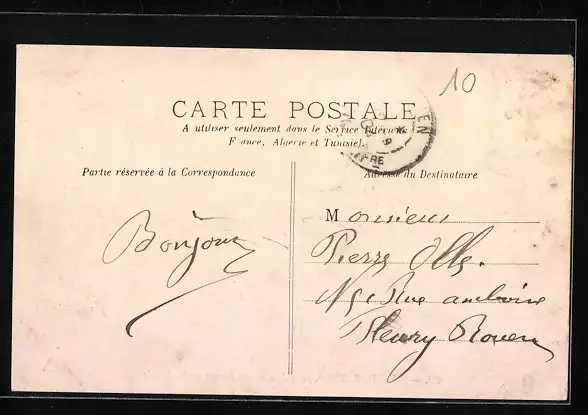 10
CARTE POSTALE
A utiliser seulement dans le Service Intérieur
France, Algérie et Tunisie).
Partie réservée à la Correspondance
Adresse du Destinataire
Bonjour
Monsieur
Pierre
Rue
Fleury Rouen